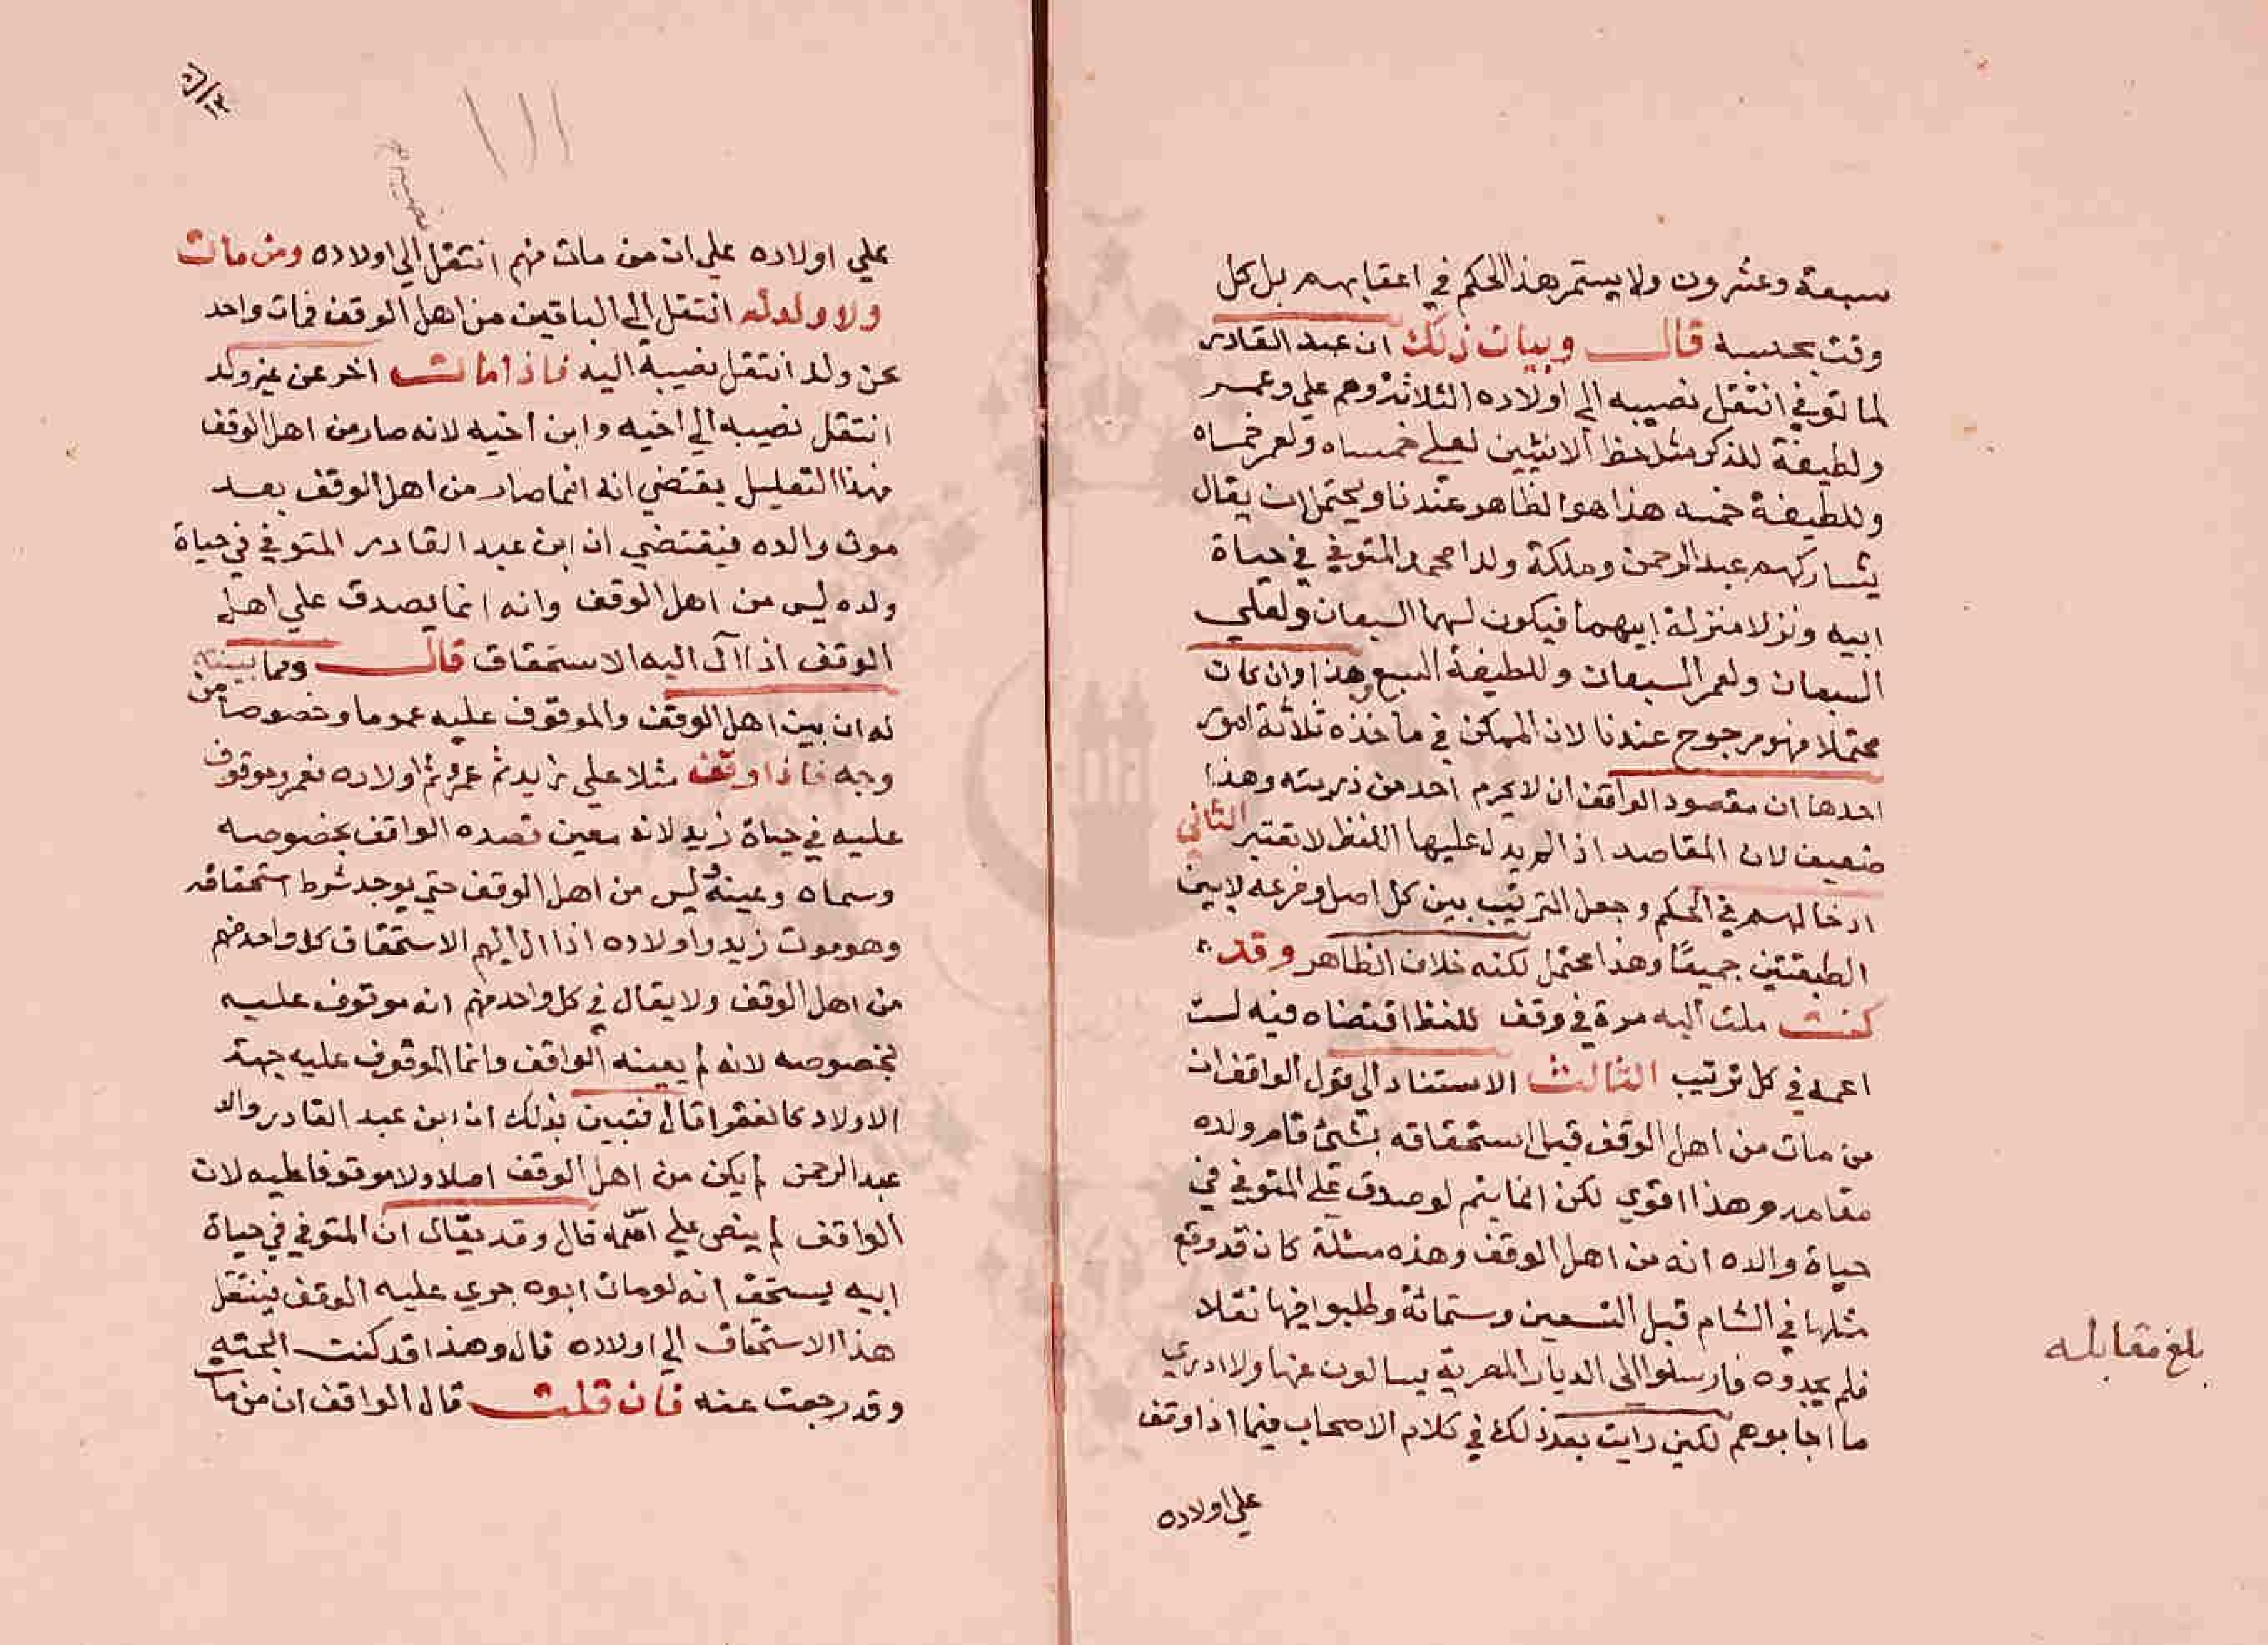 سبعة وعشرون ولا يستمر هذا الحكم في اعقابهم بل كل
وقت بحسبه قال وبيان ذلك ان عبد القادر
لما توفي انتقل نصيبه الي اولاده الثلاثة وهم علي وعمر
ولطيفة للذكر مثل حظ الانثيين لعلي خمساه ولعمر خمساه
وللطيفة خمسه هذا هو الظاهر عندنا ويحتمل ان يقال
يشاركهم عبد الرحمن وملكة ولدا محمد المتوفي في حياة
ابيه ونزلا منزلة ابيهما فيكون لهما السبعان ولعلي
السبعان ولعمر السبعان وللطيفة السبع وهذا وان كان
محتملا فهو مرجوح عندنا لان الممكن في ماخذه ثلاثة امور
احدها ان مقصود الواقف ان لا يحرم احد من ذريته وهذا
ضعيف لان المقاصد اذا لم يدل عليها اللفظ لا تعتبر الثاني
ادخالهم في الحكم وجعل الترتيب بين كل اصل وفرعه لا بين
الطبقتين جميعًا وهذا محتمل لكنه خلاف الظاهر وقد
كنت ملت اليه مرة في وقف للفظ اقتضاه فيه لست
اعمه في كل ترتيب الثالث الاستناد الى قول الواقف ان
من مات من اهل الوقف قبل استحقاقه بشئ قام ولده
مقامه وهذا اقوي لكن انما يتم لو صدق علي المتوفي في
حياة والده انه من اهل الوقف وهذه مسئلة كان قد وقع
مثلها في الشام قبل التسعين وستمائة وطلبوا فيها نقلا
فلم يجدوه فارسلوا الى الديار المصرية يسالون عنها ولا ادري
ما اجابوهم لكني رايت بعد ذلك في كلام الاصحاب فيما اذا وقف
علي اولاده
بلغ مقابله
علي اولاده علي ان من مات منهم انتقل الي اولاده ومن مات
ولا ولد له انتقل الي الباقين من اهل الوقف فمات واحد
عن ولد انتقل نصيبه اليه فاذا مات اخر عن غير ولد
انتقل نصيبه الي اخيه وابن اخيه لانه صار من اهل الوقف
فهذا التعليل يقتضي انه انما صار من اهل الوقف بعد
موت والده فيقتضي ان ابن عبد القادر المتوفي في حياة
ولده ليس من اهل الوقف وانه انما يصدق علي اهل
الوقف اذا آل اليه الاستحقاق قال ومما يتنبه
له ان بين اهل الوقف والموقوف عليه عموما وخصوصا من
وجه فاذا وقف مثلا علي زيد ثم عمرو ثم اولاده فعمرو موقوف
عليه في حياة زيد لانه معين قصده الواقف بخصوصه
وسماه وعينه وليس من اهل الوقف حتي يوجد شرط استحقاقه
وهو موت زيد واولاده اذا ال اليهم الاستحقاق كل واحد منهم
من اهل الوقف ولا يقال في كل واحد منهم انه موقوف عليه
بخصوصه لانه لم يعينه الواقف وانما الموقوف عليه جهة
الاولاد كالفقرا قال فتبين بذلك ان ابن عبد القادر والد
عبد الرحمن لم يكن من اهل الوقف اصلا ولا موقوفا عليه لان
الواقف لم ينص علي اسمه قال وقد يقال ان المتوفي في حياة
ابيه يستحق انه لو مات ابوه جري عليه الوقف فينتقل
هذا الاستحقاق الي اولاده قال وهذا قد كنت ابحثه
وقد رجعت عنه فان قلت قال الواقف ان من مات